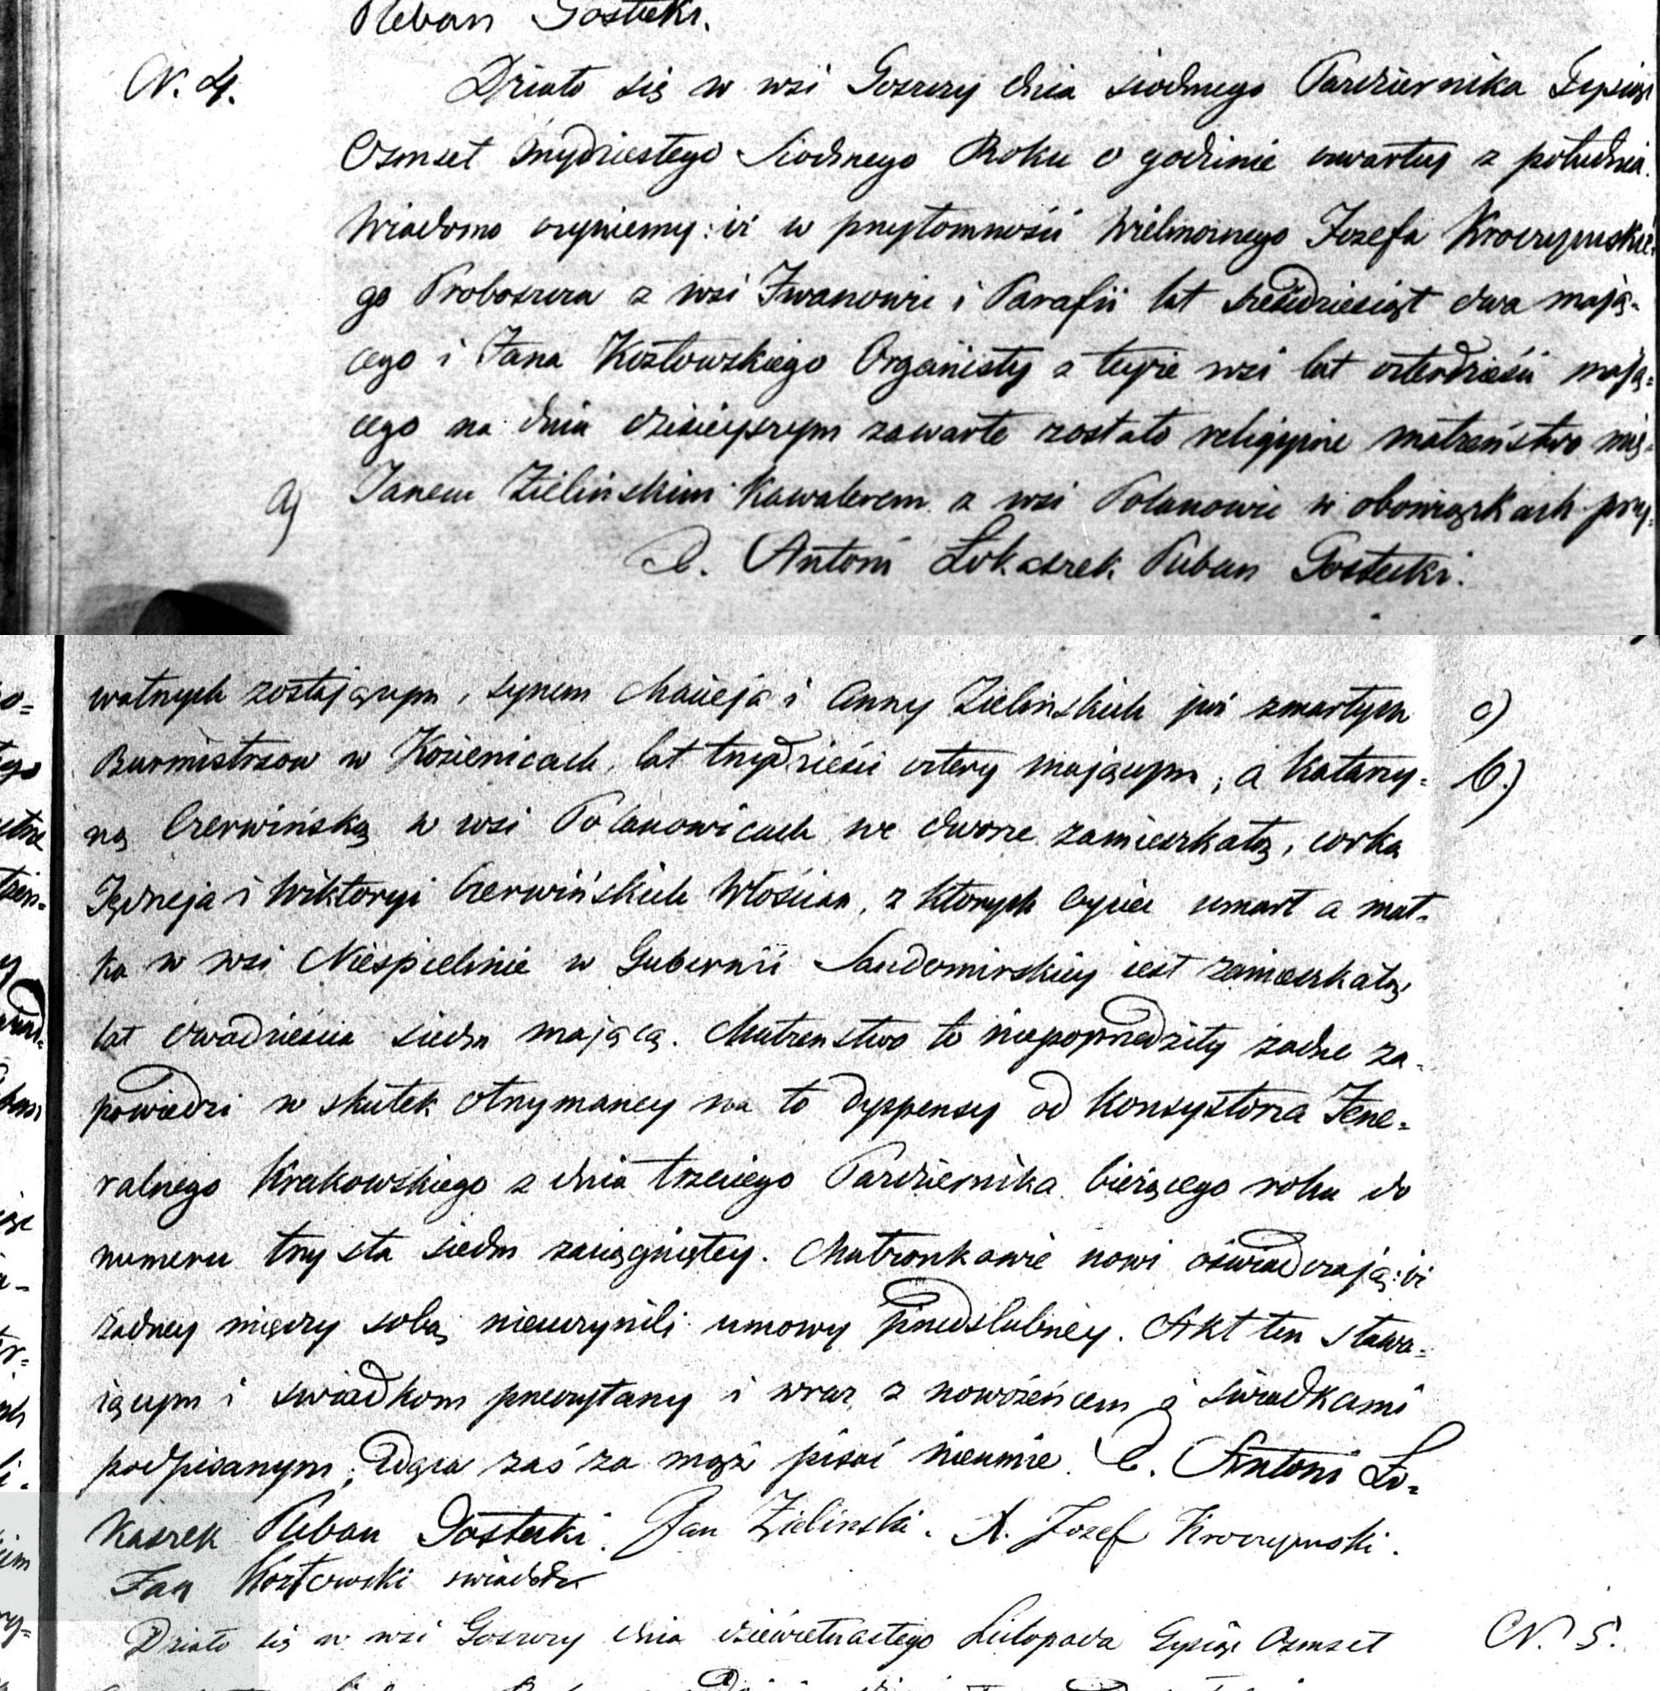 Pleban Gostecki.
N. 4.
Działo się w wsi Goszczy dnia siodmego Pazdziernika Tysiąc
Osmset trzydziestego Siodmego Roku o godzinie czwartey z południa.
Wiadomo czyniemy: iż w przytomności Wielmożnego Jozefa Kroczynskie-
go Proboszcza z wsi Iwanowic i Parafii lat sześćdziesiąt dwa mają-
cego i Jana Kozłowskiego Organisty z teyże wsi lat czterdzieści mają-
cego na dniu dzisieyszym zawarte zostało religiyne małżeństwo mię-
a) Janem Zielinskim Kawalerem z wsi Polanowic w obowiązkach pry-
X. Antoni Lokaszek Pleban Gostecki.
watnych zostaiącym, synem Macieja i Anny Zielinskich już zmarłych c)
Burmistrzow w Kozienicach, lat trzydzieści cztery mającym, a Katarzy- b.)
ną Czerwińską w wsi Polanowicach we dworze zamieszkałą, corką
Jędrzeja i Wiktoryi Czerwińskich Włościan, z ktorych Oyciec umarł a mat-
ka w wsi w Gubernii Sandomirskiey iest zamieszkałą,
lat dwadzieścia siedm mającą. Małzenstwo to niepoprzedziły żadne za-
powiedzi w skutek otrzymaney na to dyspensy od Konsystorza Jene-
ralnego Krakowskiego z dnia trzeciego Pazdziernika bieżącego roku do
numeru trzysta siedm zaciągniętey. Małżonkowie nowi oświadczają: iż
żadney między sobą nieuczynili umowy przedslubney. Akt ten stawa-
iącym i swiadkom przeczytany i wraz z nowożeńcem i swiadkami
podpisanym; Idąca zaś za mąż pisać nieumie. X. Antoni Lo-
kaszek Pleban Gostecki. Jan Zielinski. X. Jozef Kroczynski.
Jan Kozłowski swiadek
Działo się w wsi Goszczy dnia dziewiętnastego Listopada Tysiąc Osmset N. 5.